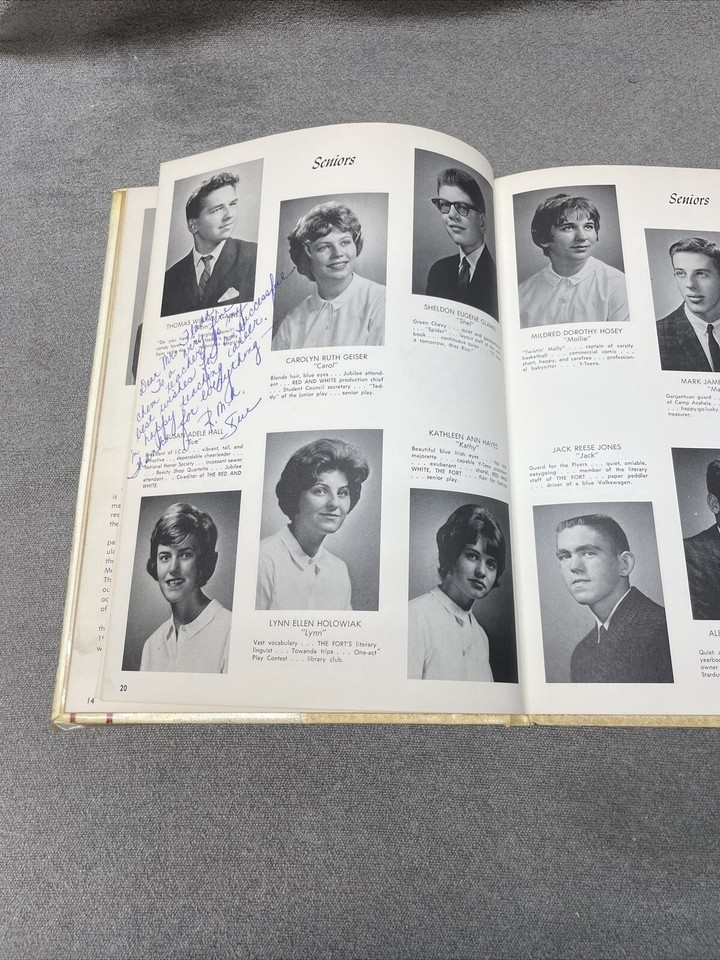 Seniors
CAROLYN RUTH GEISER
"Carol"
Blonde hair, blue eyes . . . Jubilee attend-
ant . . . RED AND WHITE production chief
. . . Student Council secretary . . . "Ted-
dy" of the junior play . . . senior play.
SHELDON EUGENE
"Shel"
Green Chevy . . . quiet and
. . . "Spider"
book . . . continuous
it tomorrow, Miss Rice."
THOMAS
Dear
best wishes for a successful
happy teaching career.
for everything
Sue
SUSAN ADELE HALL
"Sue"
President of I.C.C. . . . vibrant, tall, and
attractive . . . dependable cheerleader . . .
National Honor Society . . . incessant sewer
. . . Beauty Shop Quartette . . . Jubilee
attendant . . . Co-editor of THE RED AND
WHITE.
KATHLEEN ANN HAYES
"Kathy"
Beautiful blue Irish eyes . . .
majorette . . . capable Y-Teen
. . . exuberant . . . choral, RED AND
WHITE, THE FORT . . . flair for
. . . senior play.
LYNN ELLEN HOLOWIAK
"Lynn"
Vast vocabulary . . . THE FORT'S literary
linguist . . . Towanda trips . . . One-act
Play Contest . . . library club.
20
14
Seniors
MILDRED DOROTHY HOSEY
"Mollie"
"Twistin' Molly" . . . captain of varsity
basketball . . . commercial comic . . .
short, happy, and carefree . . . profession-
al babysitter . . . Y-Teens.
MARK JAM
Gargantuan guard
of Camp Acahela
. . . happy-go-lucky
treasurer.
JACK REESE JONES
"Jack"
Guard for the Flyers . . . quiet, amiable,
easygoing . . . member of the literary
staff of THE FORT . . . paper peddler
. . . driver of a blue Volkswagen.
ALE
Quiet
yearbo
owner
Stardu